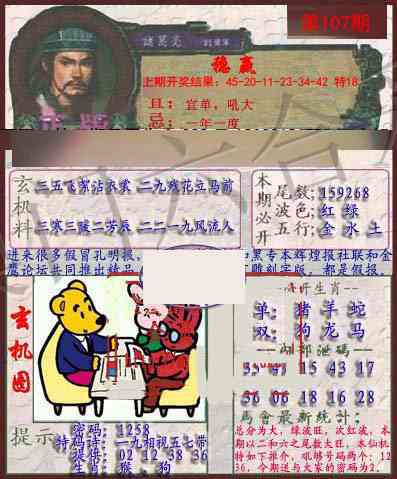 第107期
諸葛亮
稳赢
上期开奖结果：45-20-11-23-34-42 特18
宜单，吼大
忌：一年一度
玄机料
三五飞絮沾衣裳 二九残花立马前
三寒三暖二芳辰 二二一九风流人
本期必开
尾数：159268
波色：红 绿
五行：金 水 土
进来很多假冒孔明报，
和黑专本辉煌报社联和金
鹰论坛共同推出精品
雕刻字版，都是假报。
玄机图
开生肖
单：猪 羊 蛇
双：狗 龙 马
内部泄码
15 43 17
36 06 18 16 28
馬會最新統計：
总分为大，绿波旺，次红波，本
期以二和六之尾数大旺，本仙机
特如下推介，吼够号码两个：12
36，今期送与大家的密码为2。
提示
密码：1258
特码诗：一九相视五七带
提供：02 12 38 36
生肖：猴，狗